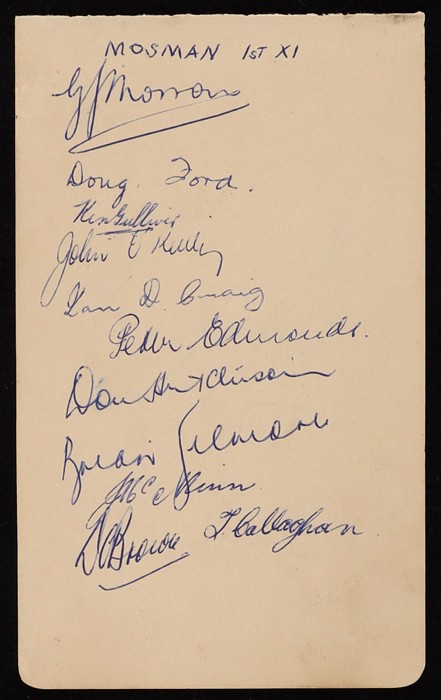 MOSMAN 1ST XI
G Morrow
Doug. Ford.
Ken Gulliver
John O'Reilly
Ian D. Craig
Peter Edmonds.
Don Hutchinson
Brian
J McGlinn
D Brown T. Callaghan